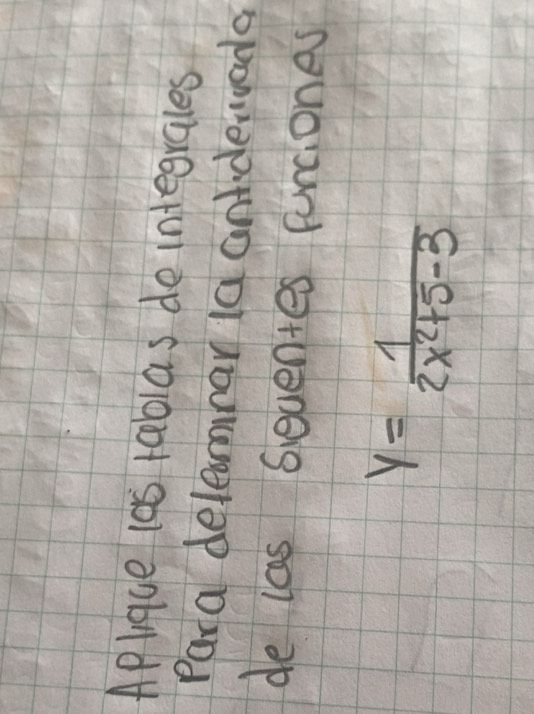 Aplique las tablas de integrales
Para determinar la antiderivada
de las siguentes funciones
y = 1/(2x²+5-3)